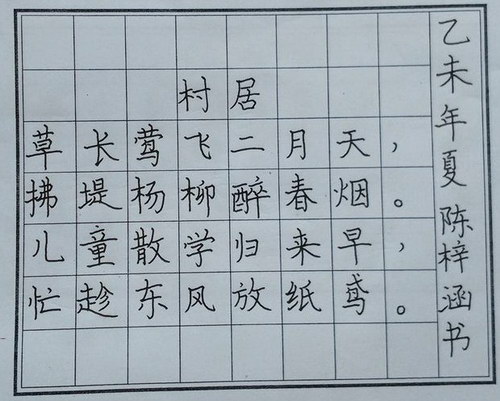 村居
草长莺飞二月天，
拂堤杨柳醉春烟。
儿童散学归来早，
忙趁东风放纸鸢。
乙未年夏 陈梓涵书